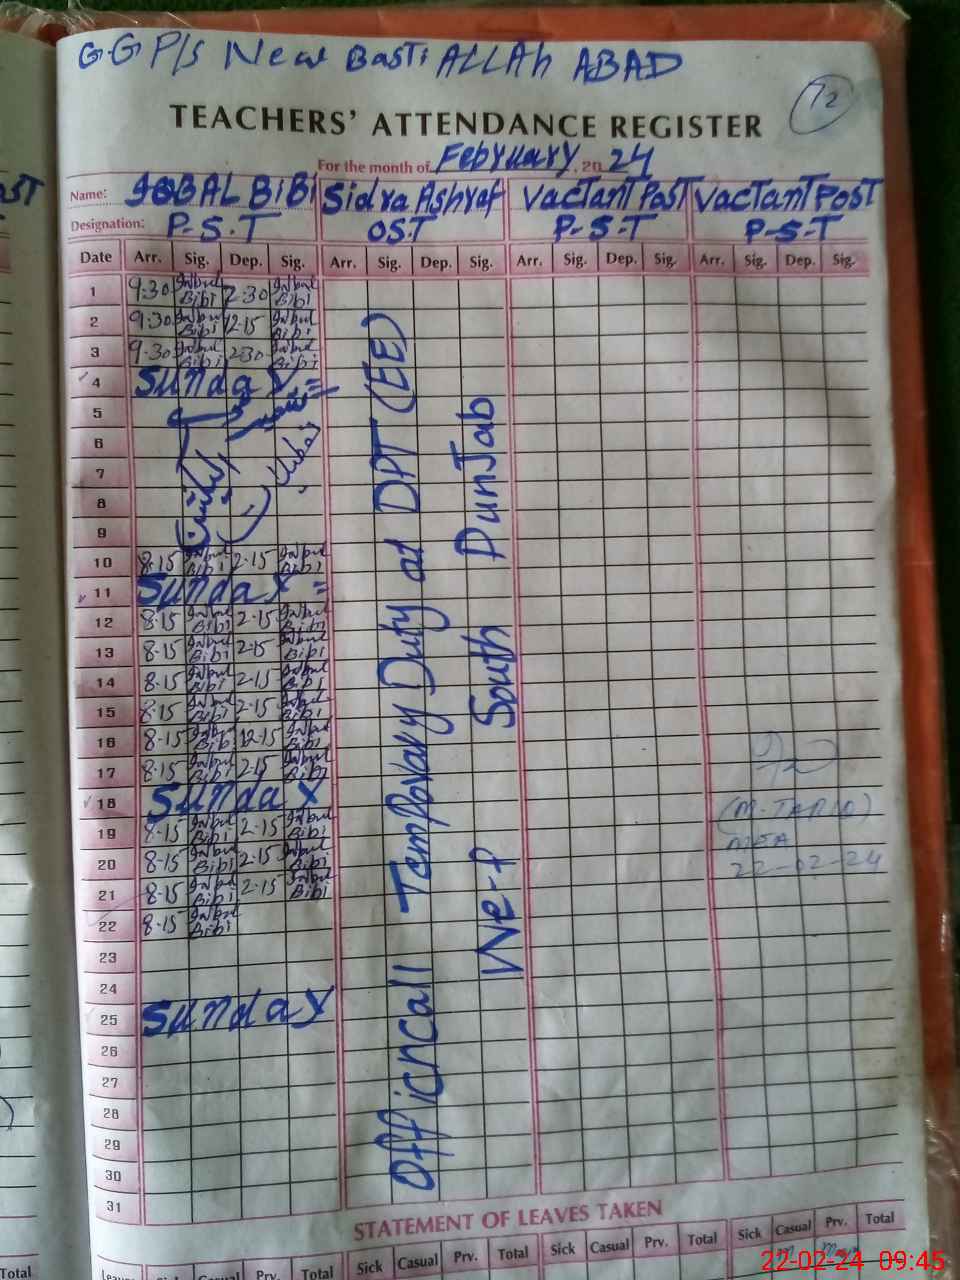 G.G P/s New Basti ALLAh ABAD
12
TEACHERS' ATTENDANCE REGISTER
For the month of February, 20 24
Name: IQBAL BiBi Sidra Ashraf VacTanT PosT VacTanT PosT
Designation: P-S.T OS.T P-S-T P-S-T
Date Arr. Sig. Dep. Sig. Arr. Sig. Dep. Sig. Arr. Sig. Dep. Sig. Arr. Sig. Dep. Sig.
1 9:30 Iqbal Bibi 2-30 Iqbal Bibi
2 9:30 Iqbal Bibi 12-15 Iqbal Bibi
3 9-30 Iqbal Bibi 2-30 Iqbal Bibi
4 Sunday
5
6
7
8
9
10 8-15 Iqbal Bibi 2-15 Iqbal Bibi
11 Sunday
12 8-15 Iqbal Bibi 2-15 Iqbal Bibi
13 8-15 Iqbal Bibi 2-15 Iqbal Bibi
14 8-15 Iqbal Bibi 2-15 Iqbal Bibi
15 8-15 Iqbal Bibi 2-15 Iqbal Bibi
16 8-15 Iqbal Bibi 12-15 Iqbal Bibi
17 8-15 Iqbal Bibi 2-15 Iqbal Bibi
18 Sunday
19 8-15 Iqbal Bibi 2-15 Iqbal Bibi
20 8-15 Iqbal Bibi 2-15 Iqbal Bibi
21 8-15 Iqbal Bibi 2-15 Iqbal Bibi
22 8-15 Iqbal Bibi
23
24
25 Sunday
26
27
28
29
30
31
Officncall TempPovary Duty at DPT (EE)
We-f South PunJab
(M-TARIQ)
MEA
22-02-24
STATEMENT OF LEAVES TAKEN
Sick Casual Prv. Total Sick Casual Prv. Total Sick Casual Prv. Total Sick Casual Prv. Total
22-02-24 09:45